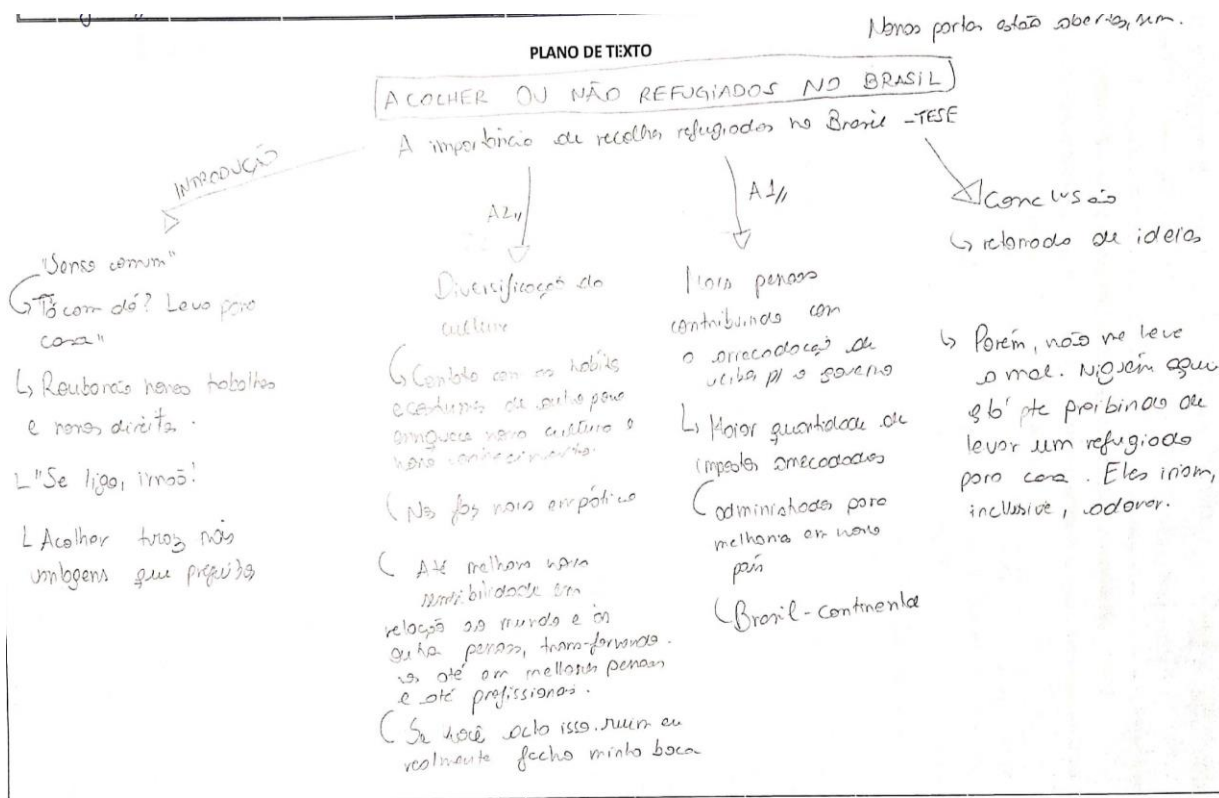 Nossas portas estão abertas, sim.
PLANO DE TEXTO
ACOLHER OU NÃO REFUGIADOS NO BRASIL
A importância de recolher refugiados no Brasil - TESE
INTRODUÇÃO
"Senso comum"
Tá com dó? Leva para
casa"
Roubarão nossos trabalhos
e nossos direitos.
"Se liga, irmão!
Acolher traz mais
vantagens que prejuízos
A2,,
Diversificação da
cultura
Contato com os hábitos
e costumes de outro povo
enriquece nossa cultura e
nosso conhecimento.
Nos faz mais empático
Até melhora nossa
sensibilidade em
relação ao mundo e às
outras pessoas, transformando-
os até em melhores pessoas
e até profissionais.
Se você acha isso ruim eu
realmente fecho minha boca
A1,,
Mais pessoas
contribuindo com
a arrecadação de
verba p/ o governo
Maior quantidade de
impostos arrecadados
administrados para
melhoria em nosso
país
Brasil-continental
Conclusão
retomada de ideias
Porém, não me leve
a mal. Niguém aqui
tá te proibindo de
levar um refugiado
para casa. Eles iriam,
inclusive, adorar.